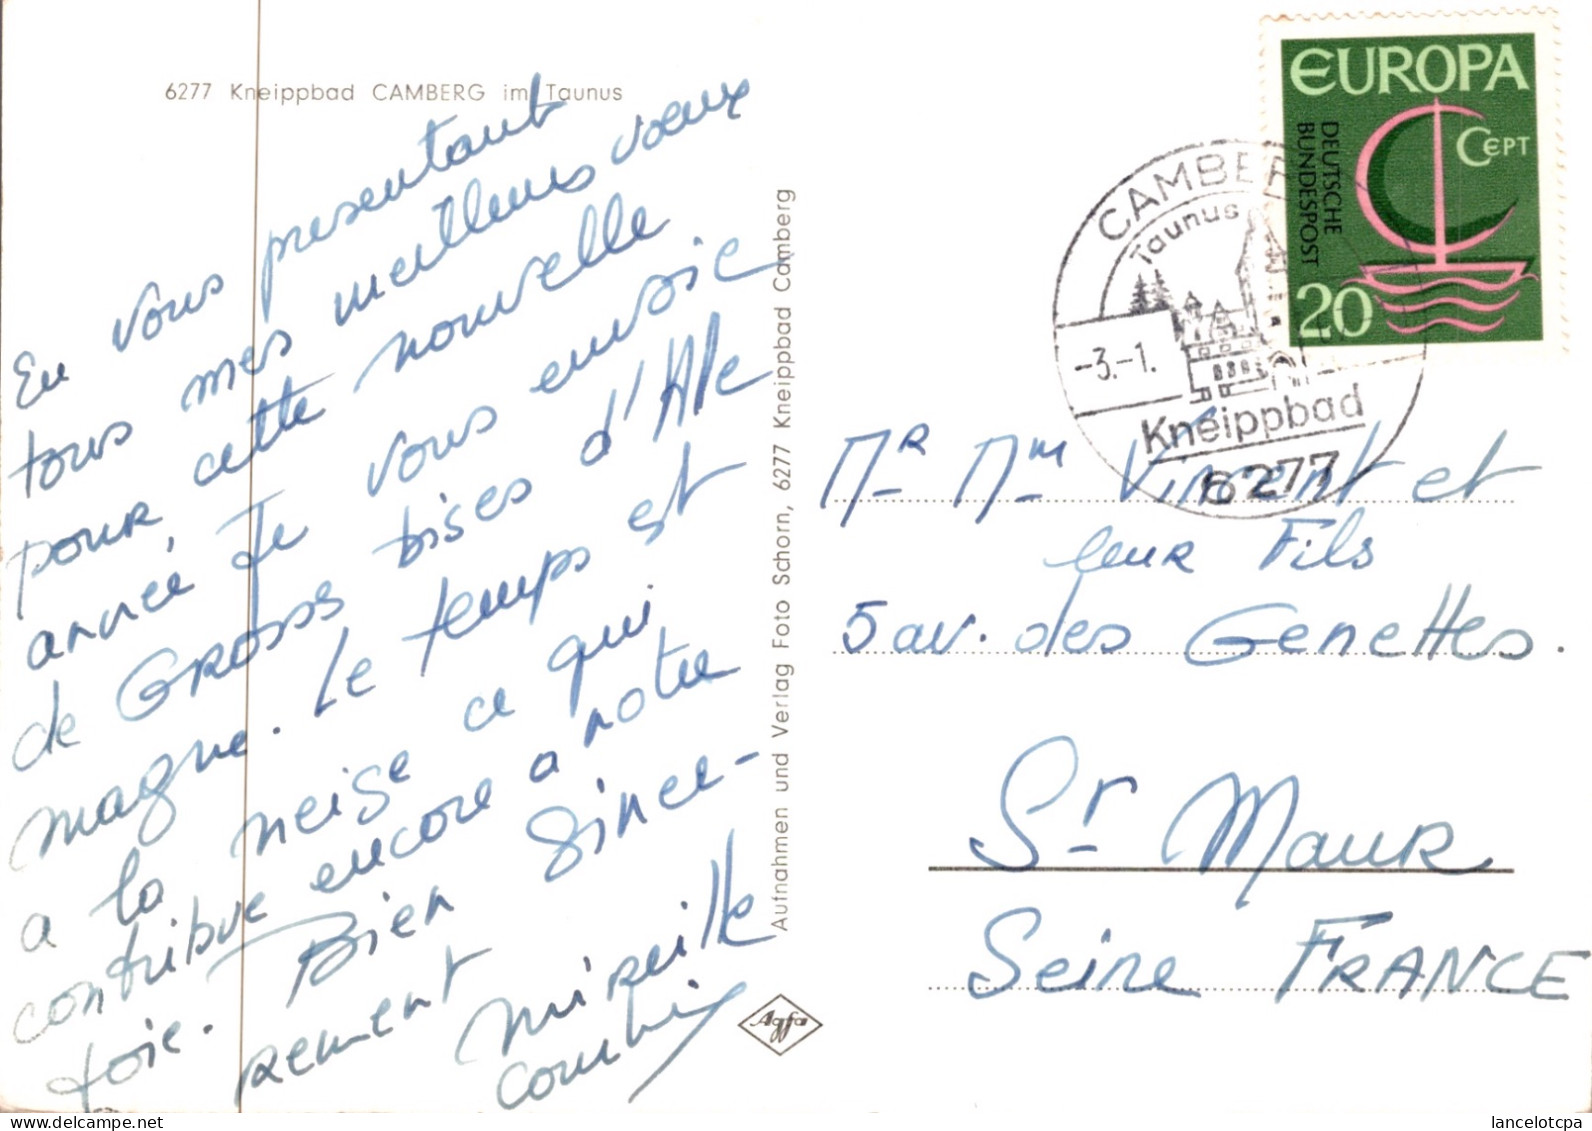 6277 Kneippbad CAMBERG im Taunus
En vous presentant
tous mes meilleurs voeux
pour cette nouvelle
année, Je vous envoie
de GROSSES bises d'Alle
magne. Le temps est
a la neige ce qui
contribue encore a notre
joie. Bien Since-
rement
Mireille
Aufnahmen und Verlag Foto Schorn, 6277 Kneippbad Camberg
Agfa
EUROPA
CEPT
DEUTSCHE
BUNDESPOST
20
CAMBERG
Taunus
-3.-1.
Kneippbad
6277
Mr Mm Vincent et
leur Fils
5 av. des Genettes.
St Maur
Seine FRANCE
lancelotcpa